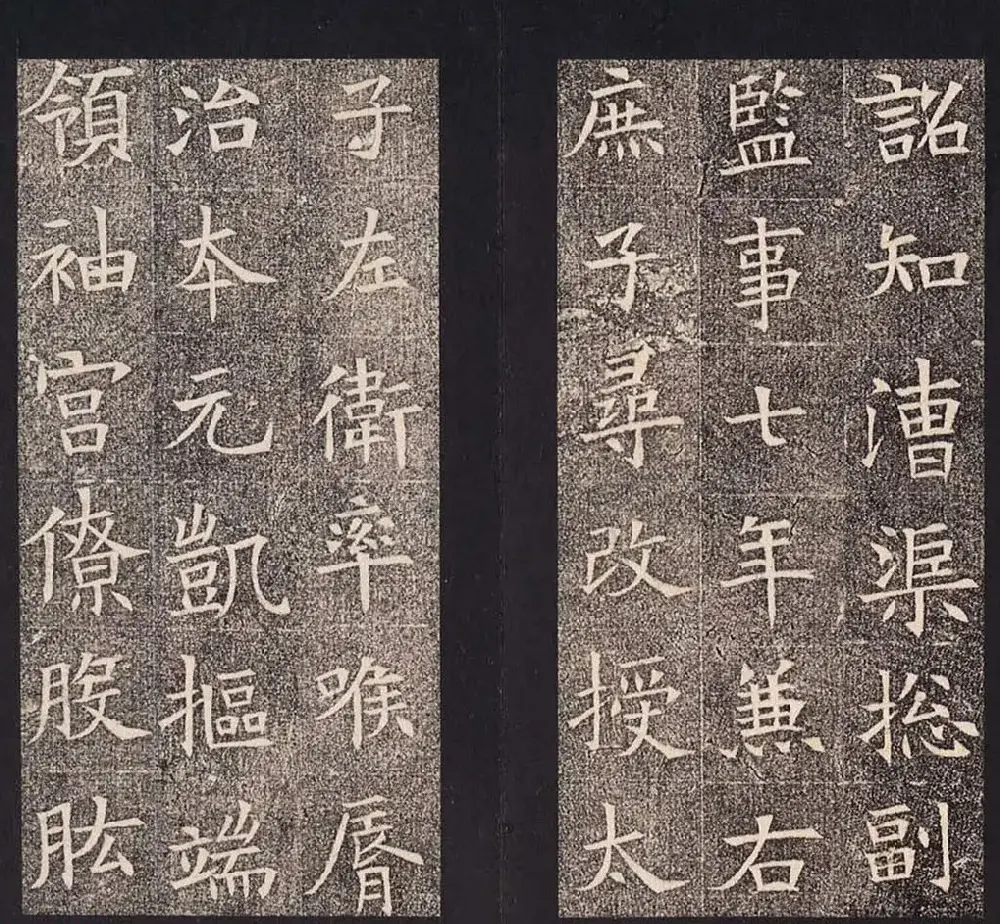 詔知漕渠捴副
監事七年兼右
庶子尋改授太
子左衛率喉脣
治本元凱摳端
領袖宮僚股肱